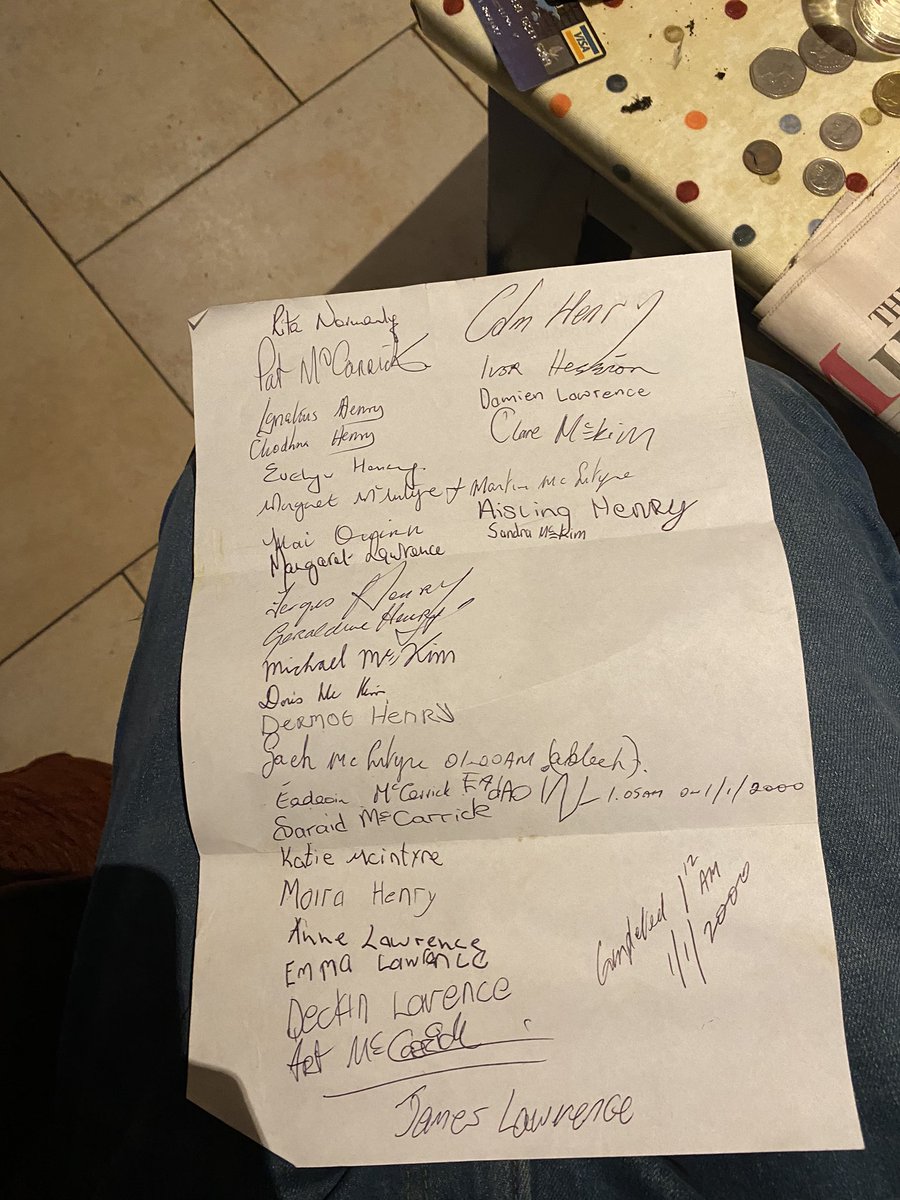 VISA
THE
Rita Normanly
Colm Henry
Pat McCarrick
Ivor Heskion
Ignatius Henry
Damien Lawrence
Henry
Clare McKim
Evelyn Henry.
Margaret McIntyre + Martin McIntyre
Aisling Henry
Mai
Sandra McKim
Margaret Lawrence
Fergus Henry
Geraldine Henry
Michael McKim
Doris Mc Kim
Dermot Henry
Jack McIntyre 01.00AM
McCarrick 1.05AM on 1/1/2000
Saraid McCarrick
Katie Mcintyre
Moira Henry
Completed 1 12 AM
1/1/2000
Anne Lawrence
Emma Lawrence
Lawrence
Art McCarrick
James Lawrence